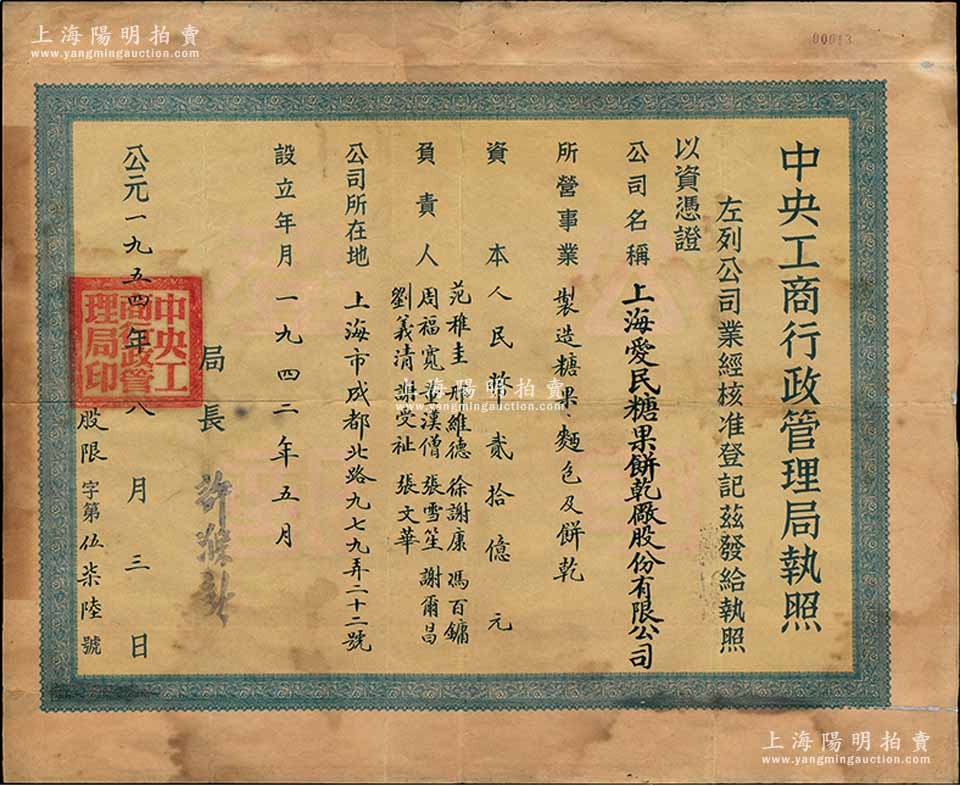 上海陽明拍賣
www.yangmingauction.com
00013
中央工商行政管理局執照
左列公司業經核准登記茲發給執照
以資憑證
公司名稱 上海愛民糖果餅乾廠股份有限公司
所營事業 製造糖果、麵包及餅乾
資本 人民幣貳拾億元
負責人 范雅圭 邢維德 徐謝康 馮百鏞
周福寬 漢僧 張雪笙 謝爾昌
劉義清 謝受祉 張文華
公司所在地 上海市成都北路九七九弄二十二號
設立年月 一九四二年五月
局長 許滌新
公元一九五四年八月三日
中央工商行政管理局印
股限字第伍柒陸號
上海陽明拍賣
www.yangmingauction.com